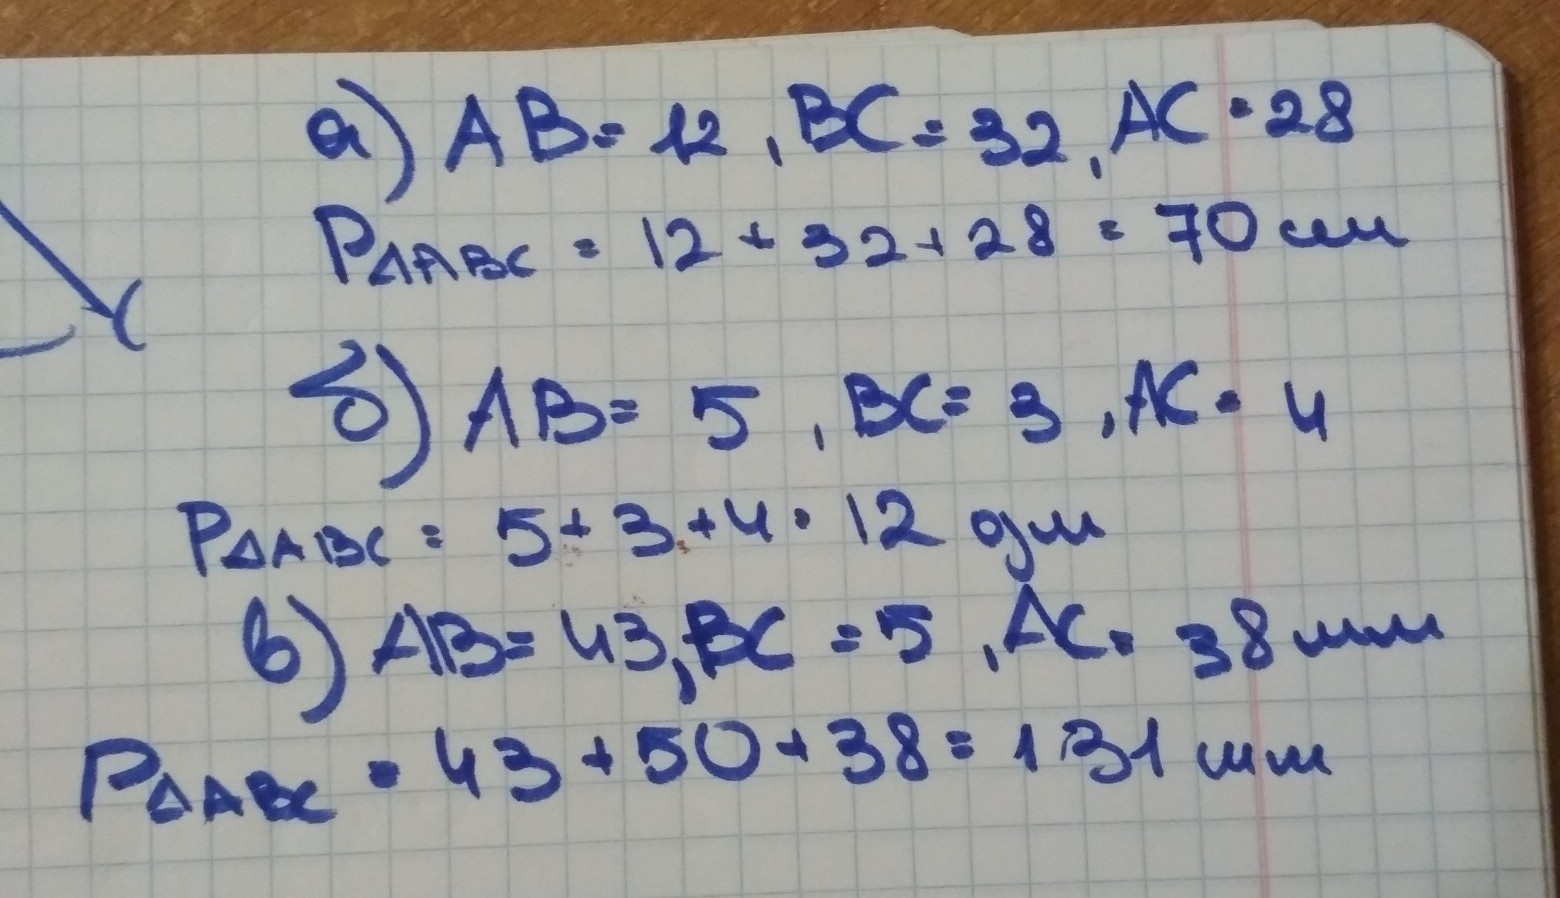 а) AB = 12, BC = 32, AC = 28
P△ABC = 12 + 32 + 28 = 70 см
C
б) AB = 5, BC = 3, AC = 4
P△ABC = 5 + 3 + 4 = 12 дм
в) AB = 43, BC = 5, AC = 38 мм
P△ABC = 43 + 50 + 38 = 131 мм